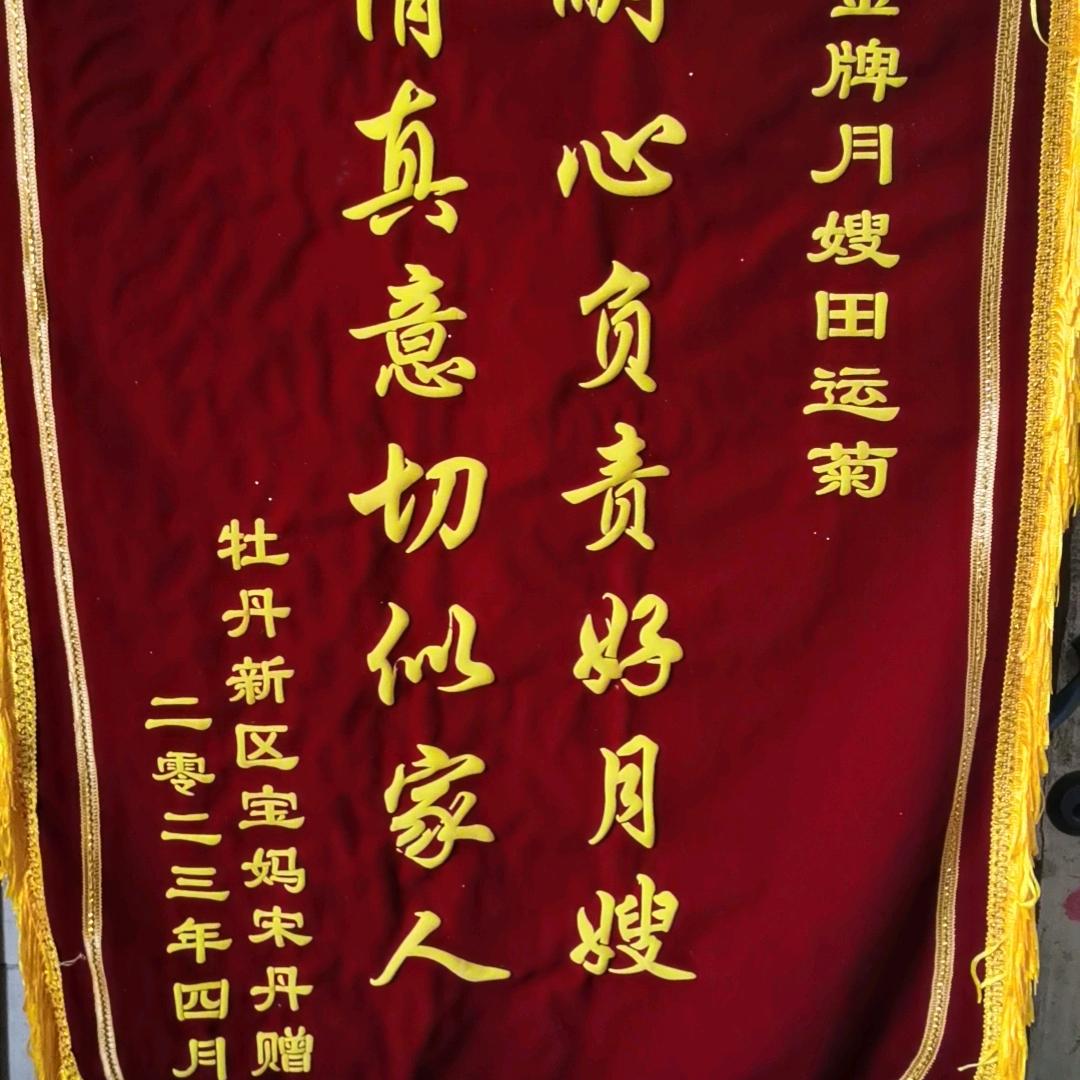 金牌月嫂田运菊
耐心负责好月嫂
情真意切似家人
牡丹新区宝妈宋丹赠
二零二三年四月